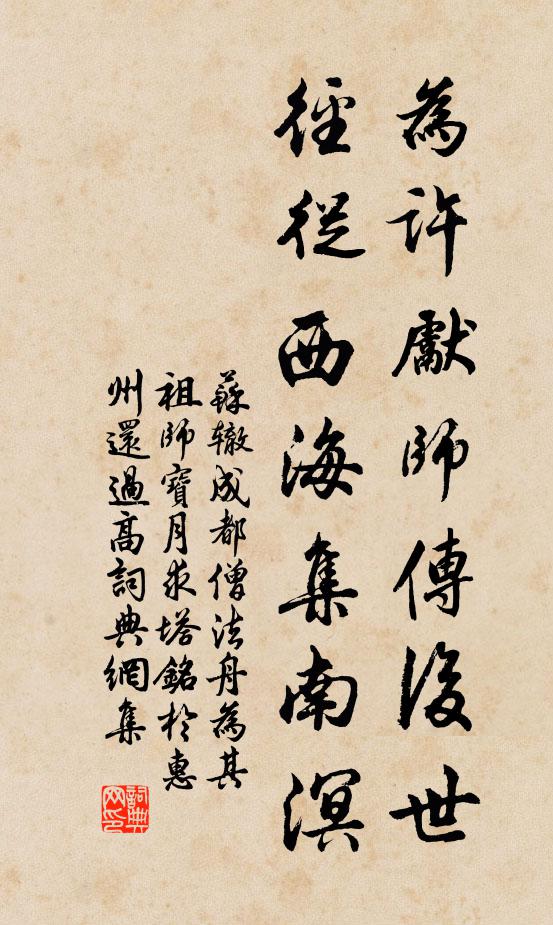 為許獻師傳後世
徑從西海集南溟
蘇轍成都僧法舟為其
祖師寶月求塔銘於惠
州還過高詞典網集
詞典網印